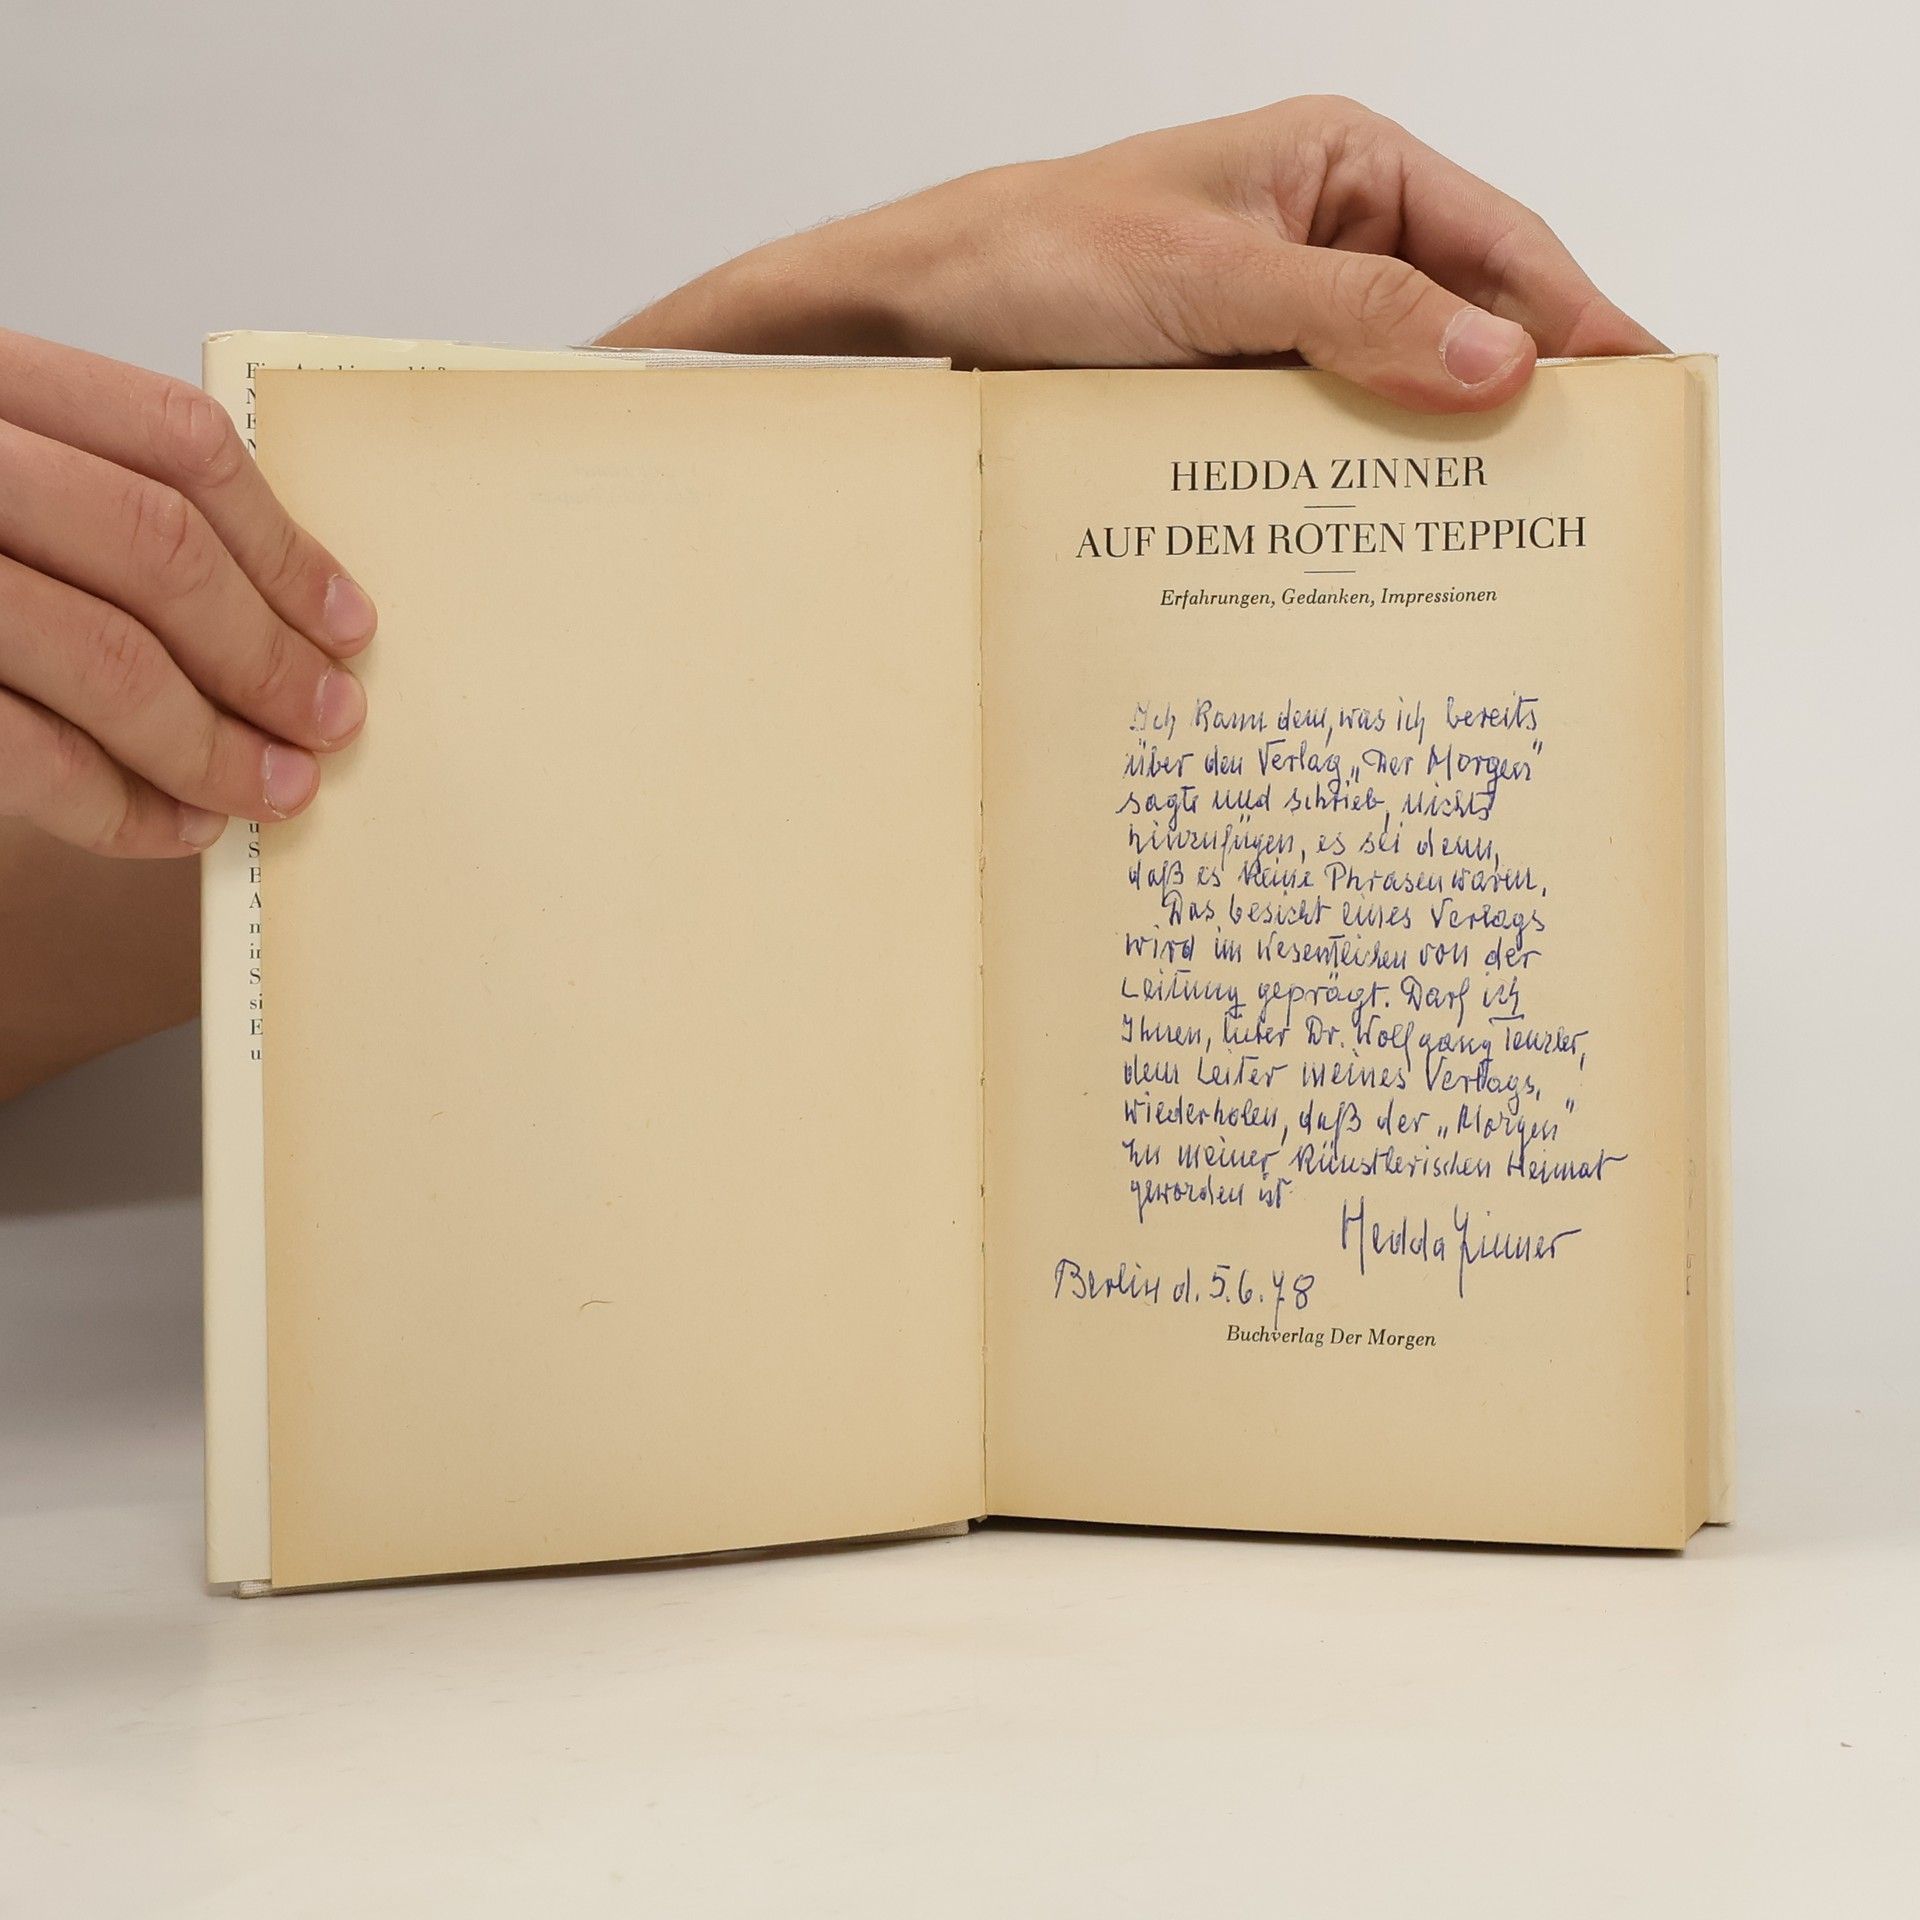 HEDDA ZINNER
AUF DEM ROTEN TEPPICH
Erfahrungen, Gedanken, Impressionen
Ich kann dem, was ich bereits
über den Verlag „Der Morgen"
sagte und schrieb, nichts
hinzufügen, es sei denn,
daß es keine Phrasen waren.
Das Gesicht eines Verlags
wird im Wesentlichen von der
Leitung geprägt. Darf ich
Ihnen, lieber Dr. Wolfgang Tenzler,
dem Leiter meines Verlags,
wiederholen, daß der „Morgen"
zu meiner künstlerischen Heimat
geworden ist
Hedda Zinner
Berlin d. 5.6.78
Buchverlag Der Morgen